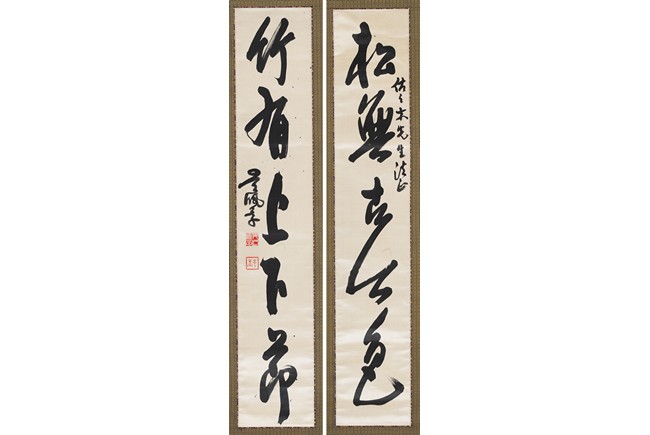 松無古今色
佐々木先生法正
竹有上下節
吳佩孚